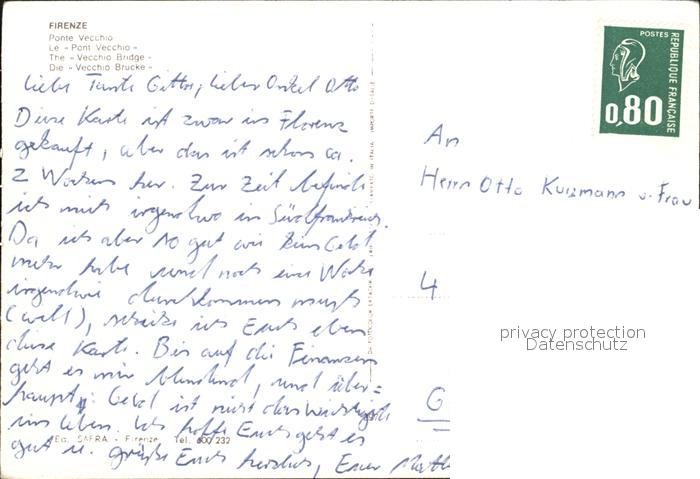 FIRENZE
Ponte Vecchio
Le - Pont Vecchio -
The - Vecchio Bridge -
Die - Vecchio Brücke -
Liebe Tante Gitta, lieber Onkel Otto
Diese Karte ist zwar in Florenz
gekauft, aber das ist schon ca.
2 Wochen her. Zur Zeit befinde
ich mich irgendwo in Südfrankreich.
Da ich aber so gut wie kein Geld
mehr habe und noch eine Woche
irgendwie durchkommen muß
(will), schicke ich Euch eben
diese Karte. Bis auf die Finanzen
geht es mir blendend, und über=
haupt: Geld ist nicht das wichtigste
im Leben. Ich hoffe Euch geht es
gut u. grüße Euch herzlich, Euer
Ed. SAFRA - Firenze Tel. 600/232
POSTES
REPUBLIQUE FRANÇAISE
0,80
An
Herrn Otto Kurzmann u. Frau
4
G
privacy protection
Datenschutz